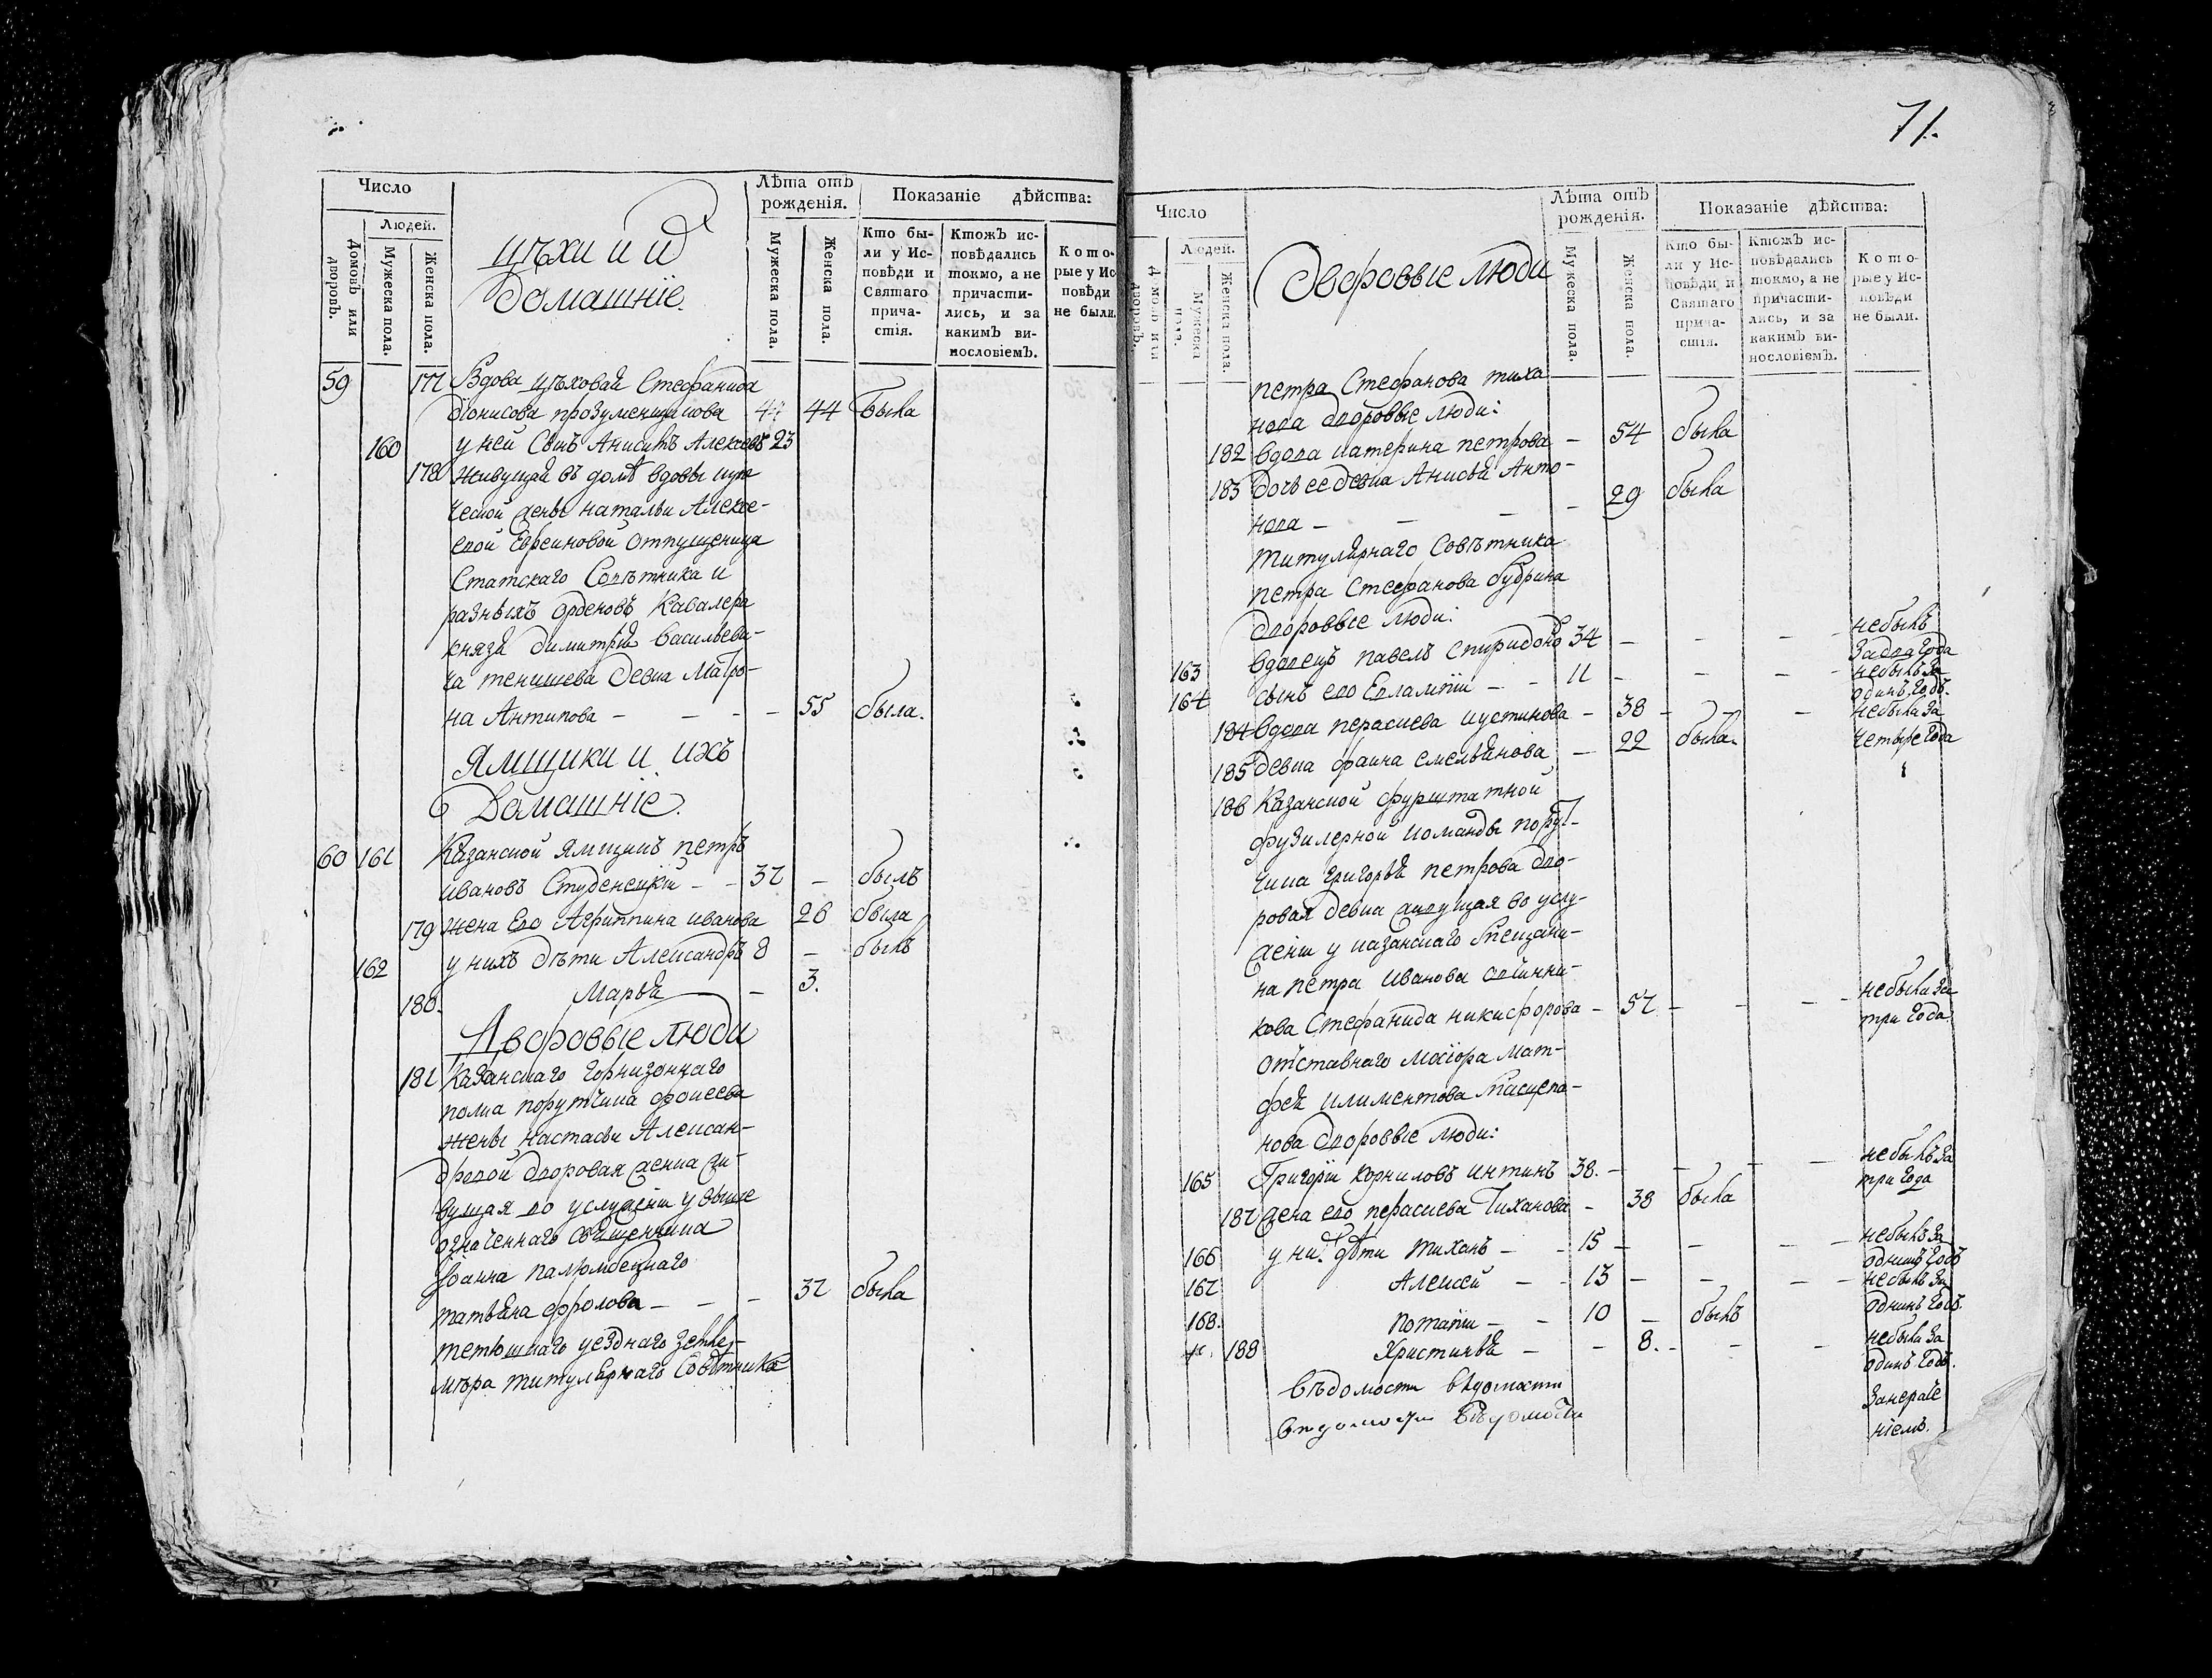 Число
Людей.
Домовъ или дворовъ.
Мужеска пола.
Женска пола.
цѣхи и и
Домашнiе.
Лѣта отъ рожденiя.
Мужеска пола.
Женска пола.
Показанiе дѣйства:
Кто бы-
ли у Ис-
повѣди и
Святаго
прича-
стiя.
Ктожъ ис-
повѣдались
токмо, а не
причасти-
лись, и за
какимъ ви-
нословiемъ.
Кото-
рые у Ис
повѣди
не были.
59 177 Вдова цѣховая Стефанида
Дiонисова прозуменщикова 44 44 была
160 у ней Сынъ Анисимъ Алексѣевъ 23
178 Живущая въ домѣ вдовы купе
ческой жены натальи Алексѣе-
евой Евреиновой отпущеница
Статскаго Совѣтника и
разныхъ орденовъ Кавалера
князя Димитрiя Васильеви-
ча тенишева девка Матро-
на Антипова — — — — 55 была.
Ямщики и ихъ
Домашнiе.
60 161 Казанской ямщикъ петръ
ивановъ Студенецкiй — — 37 — былъ
179 жена Его Агриппина иванова 26 была
162 у нихъ дѣти Александръ 8 — былъ
180. Марья — 3.
Дворовые люди
181 Казанскаго Горнизоннаго
полка порутчика фокеева
жены настасьи Алексан-
дровой дворовая женка жи-
вущая во услуженiи у выше
означеннаго священника
Iоанна палюмбецкаго
татьяна фролова — — — 37 была
тетюшкаго уезднаго Земле-
мѣра титулярнаго Совѣтника
71.
Число
Людей.
Домовъ или дворовъ.
Мужеска пола.
Женска пола.
Дворовые люди
Лѣта отъ рожденiя.
Мужеска пола.
Женска пола.
Показанiе дѣйства:
Кто бы-
ли у Ис-
повѣди и
Святаго
прича-
стiя.
Ктожъ ис-
повѣдались
токмо, а не
причасти-
лись, и за
какимъ ви-
нословiемъ.
Кото-
рые у Ис-
повѣди
не были.
петра Стефанова тиха
нова дворовые люди:
182 вдова катерина петрова — 54 была
183 дочь ее девка Анисья Анто-
нова — — — — 29 была
титулярнаго Совѣтника
петра Стефанова бубрина
дворовые люди:
163 вдовецъ павелъ спиридоно 34 — — — небылъ
за два года
164 сынъ его Евлампiи — — 11 — — — небылъ за
одинъ годъ.
184 вдова перасцева иустинова — 38 — — — небыла за
185 девка фаина емельянова — 22 была. четыре года
186 Казанской фурштатной
фузилерной команды поруч-
чика григорья петрова дво-
ровая девка живущая во услу-
женiи у казанскаго Мещани-
на петра иванова
кова Стефанида никифорова — 57 — — — небыла за
три года.
отставнаго Маiора Мат-
фея климентова
нова дворовые люди:
165 Григорiи корниловъ 38. — — — — небылъ за
три года
187 жена его перасцева Тиханова — 38 была
166 у ни. дѣти тиханъ — — 15 — — — — небылъ за
одинъ годъ
167 Алексей — — 13 — — — — небылъ за
одинъ годъ.
168. потапiи — — 10 — былъ
188 Христинья — — 8. — — — небыла за
одинъ годъ.
вѣдомости вѣдомости занераче
вѣдомости вѣдомости нiемъ.